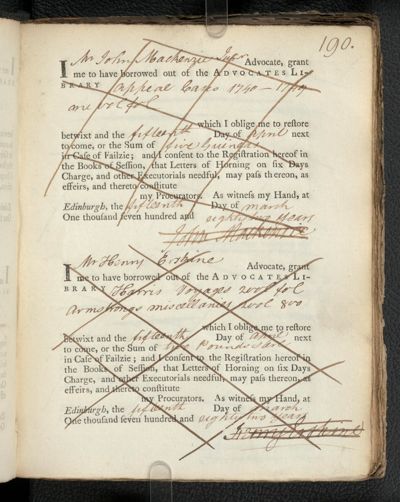 190.
I Mr John Mackenzie Junr. Advocate, grant
me to have borrowed out of the ADVOCATES LI-
BRARY appeal Cases 1740 —
one vol fol
which I oblige me to restore
betwixt and the fifteenth Day of April next
to come, or the Sum of five Guineas
in Case of Failzie; and I consent to the Registration hereof in
the Books of Session, that Letters of Horning on six Days
Charge, and other Executorials needful, may pass thereon, as
effeirs, and thereto constitute
my Procurators. As witness my Hand, at
Edinburgh, the fifteenth Day of march
One thousand seven hundred and eighty two years
John Mackenzie
I Mr Henry Erskine Advocate, grant
me to have borrowed out of the ADVOCATES LI-
BRARY Harris Voyages 2 vol fol
Armstrongs miscellanies 2 vol 8vo
which I oblige me to restore
betwixt and the fifteenth Day of April next
to come, or the Sum of
in Case of Failzie; and I consent to the Registration hereof in
the Books of Session, that Letters of Horning on six Days
Charge, and other Executorials needful, may pass thereon, as
effeirs, and thereto constitute
my Procurators. As witness my Hand, at
Edinburgh, the fifteenth Day of march
One thousand seven hundred and eighty two years
Henry Erskine